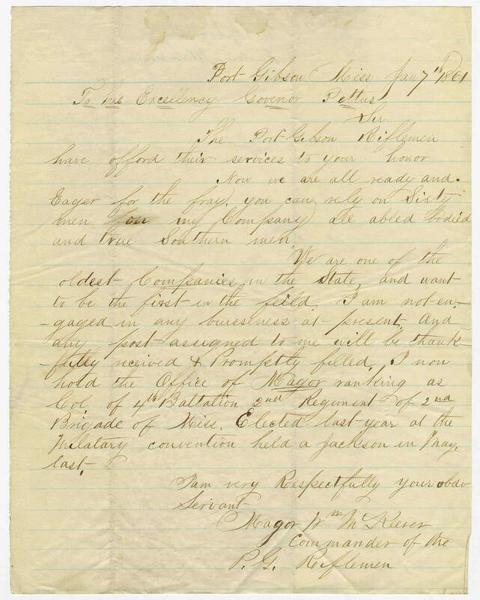 Port Gibson Miss Jan 7th 1861
To his Excellency Govenor Pettus
Sir
The Port Gibson Riflemen
have offord their services to your honor
Now we are all ready and
Eager for the fray. you can rely on Sixty
men in my Company all abled bodied
and true Southern men.
We are one of the
oldest Companies in the state, and want
to be the first in the feild. I am not en-
-gaged in any buiesiness at present, And
any post assigned to me will be thank-
-fully received & Promptly filled. I now
hold the Office of Magor ranking as
Col. of 4th Battalion 2nd Regiment of 2nd
Brigade of Miss. Elected last year at the
Milatary convention held a Jackson in May
last.
I am very Respectfully your obdt
Servant
Magor Wm McKeever
Commander of the
P. G. Riflemen